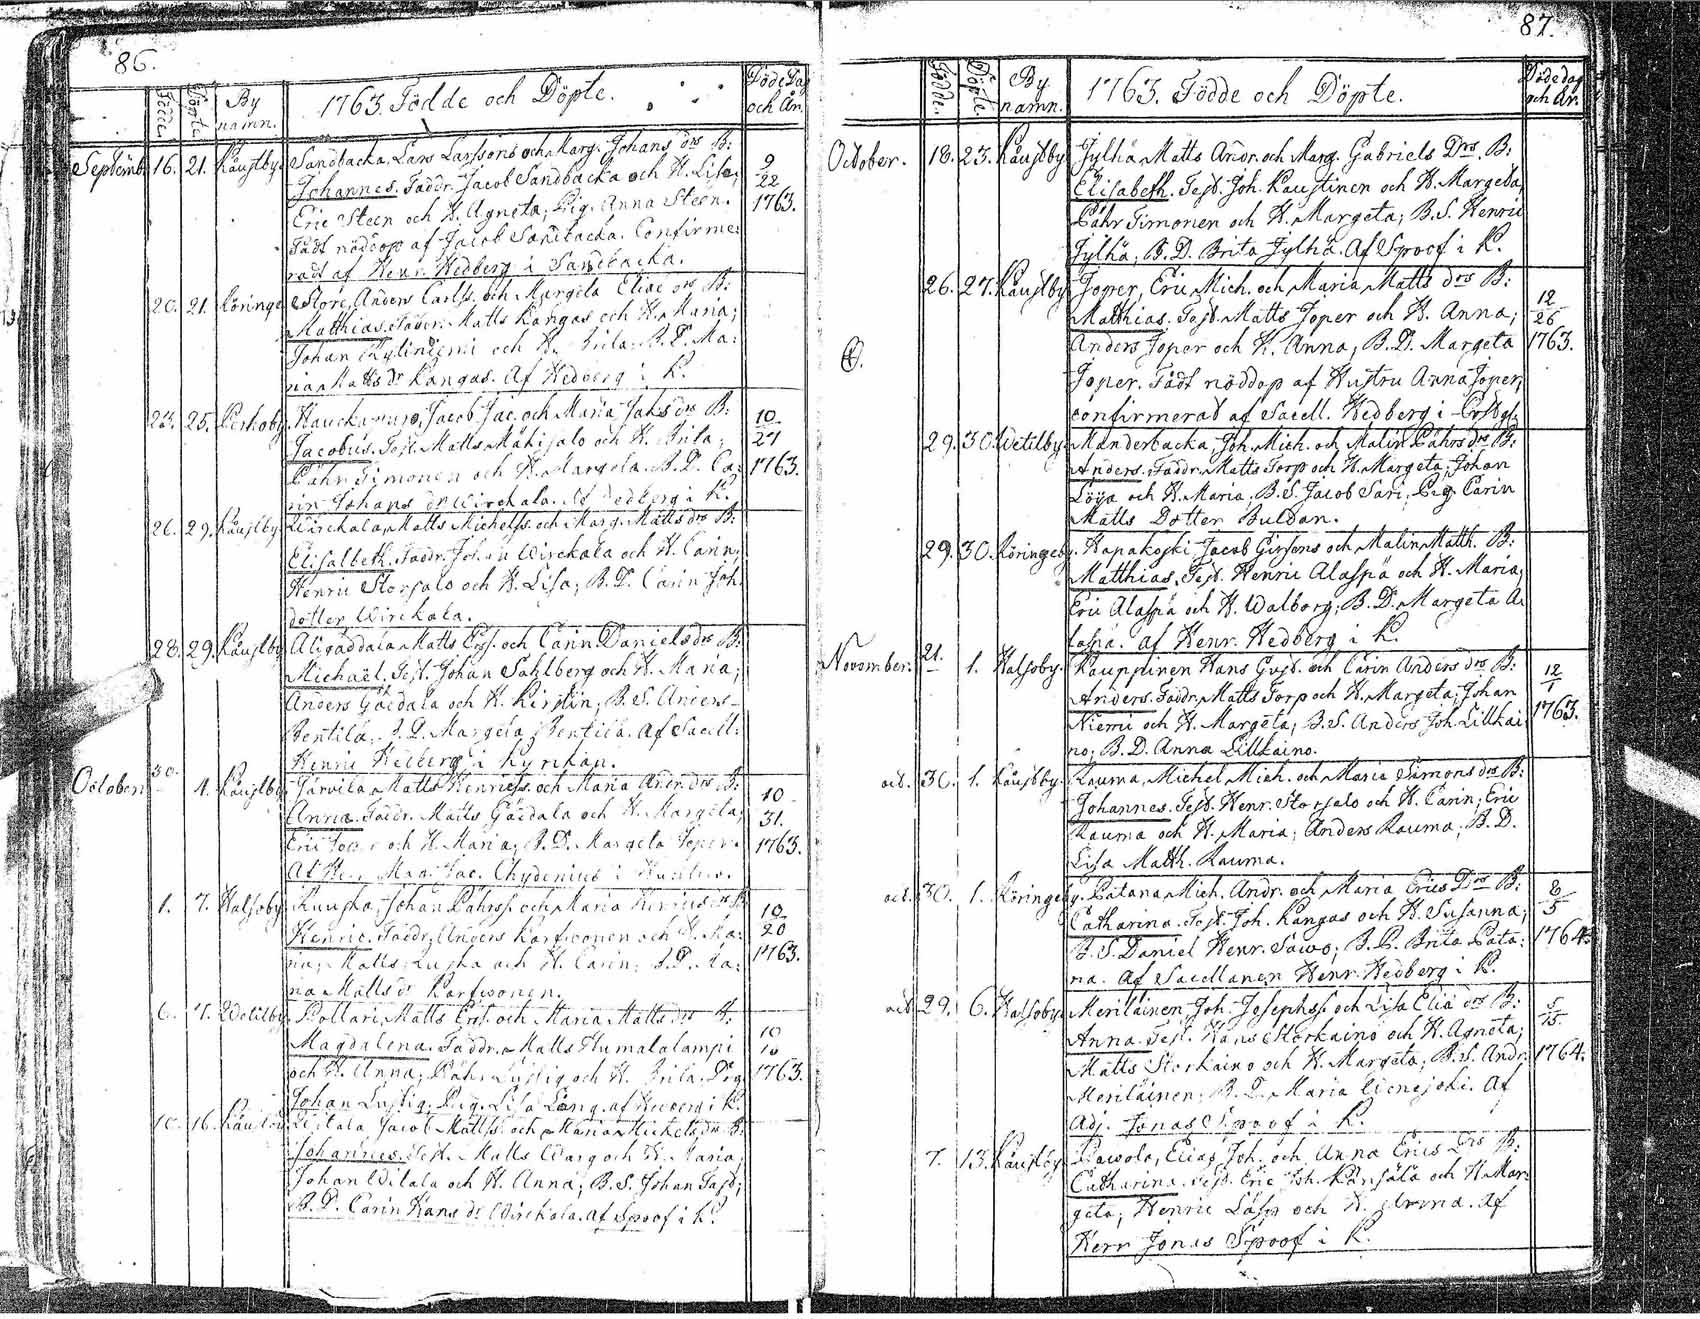 86.
Födde.
Döpte.
By
namn.
1763. Födde och Döpte.
Döde Dag
och År.
Septemb. 16. 21. Kaustby. Sandbacka, Lars Larssons och Marg. Johans drs B:
Johannes. Faddr. Jacob Sandbacka och H. Lisa;
Eric Steen och H. Agneta; Pig. Anna Steen.
Fådt nöddop af Jacob Sandbacka. Confirme-
radt af Henr. Hedberg i Sandbacka.
9
22
1763.
20. 21. Köringe Store, Anders Carlss. och Margeta Eliae drs B:
Matthias. Faddr. Matts Kangas och H. Maria;
Johan Kyliniemi och H. Brita; B. D. Ma:
ria Matts dr Kangas. Af Hedberg i K.
23. 25. Perhoby. Jacob Jac. och Maria Jaks drs B:
Jacobus. Test. Matts Måkisalo och H. Brita;
Påhr Timonen och H. Margeta. B. D. Ca:
rin Johans dr Wirckala. Af Hedberg i K.
10
27
1763.
26. 29. Kaustby. Wirckala, Matts Michelss. och Marg. Matts drs B:
Elisabeth. Faddr. Johan Wirckala och H. Carin;
Henric Storsalo och H. Lisa; B. D. Carin Joh.
dotter Wirckala.
28. 29. Kaustby Matts Ers. och Carin Daniels drs B:
Michaël. Test. Johan Sahlberg och H. Maria;
Anders Gäddala och H. Kirstin; B. S. Anders
Pentilä; B. D. Margeta Pentilä. Af Sacell:
Henric Hedberg i Kyrckan.
October 30. 1. Kaustby. Järvilä Matts Henricss. och Maria Andr. drs B:
Anna. Faddr. Matts Gäddala och H. Margeta;
Eric Joper och H. Maria; B. D. Margeta Joper.
Af He. Mag. Jac. Chydenius i
10
31.
1763.
1. 7. Halsoby. Johan Påhrss. och Maria Henrics drs B
Henric. Faddr. Anders Karfwonen och H. Ma:
ria; Matts och H. Carin; B. D. Ca:
na Matts dr Karfwonen.
10
20
1763.
6. 7. Wetilby. Pollari, Matts Ers. och Maria Matts drs B:
Magdalena. Faddr. Matts Humalalampi
och H. Anna; Påhr Lustig och H. Brita. Drg.
Johan Lustig; Pig. Lisa Lång. af Hedberg i K.
10
10
1763.
10. 16. Kaustby Jacob Mattss. och Maria Michels drs B:
Johannes. Test. Matts Warg och H. Maria;
Johan Wilala och H. Anna; B. S. Johan Tast;
B. D. Carin Hans dr Wirckala. af Spoof i K.
87.
Födde.
Döpte.
By
namn.
1763. Födde och Döpte.
Döde dag
och År.
October. 18. 23. Kaustby Jylhä Matts Andr. och Marg. Gabriels Drs. B:
Elisabeth. Test. Joh. Kaustinen och H. Margeta,
Påhr Timonen och H. Margeta; B. S. Henric
Jylhä; B. D. Brita Jylhä. Af Spoof i K.
26. 27. Kaustby. Joper, Eric Mich. och Maria Matts drs B:
Matthias. Test. Matts Joper och H. Anna;
Anders Joper och H. Anna; B. D. Margeta
Joper. Fådt nöddop af Hustru Anna Joper,
confirmerad af Sacell. Hedberg i
12
26
1763.
29. 30. Wetilby. Manderbacka, Joh. Mich. och Malin Påhrs drs B:
Anders. Faddr. Matts Torp och H. Margeta; Johan
Löya och H. Maria; B. S. Jacob Sari; Pig. Carin
Matts Dotter Buldan.
29. 30. Köringeby. Hapakoski Jacob Girsons och Malin Matth. B:
Matthias. Test. Henric Alaspä och H. Maria;
Eric Alaspä och H. Walborg; B. D. Margeta A-
laspä. af Henr. Hedberg i K.
November. 21. 1. Halsoby. Kauppinen Hans Gust. och Carin Anders drs B:
Anders. Faddr. Matts Torp och H. Margeta; Johan
Niemi och H. Margeta; B. S. Anders Joh. Lillkai-
no; B. D. Anna Lillkaino.
12
1
1763.
oct. 30. 1. Kaustby. Rauma, Michel Mich. och Maria Simons drs B:
Johannes. Test. Henr. Storsalo och H. Carin; Eric
Rauma och H. Maria; Anders Rauma; B. D.
Lisa Matth. Rauma.
oct. 30. 1. Köringeby. Patana, Mich. Andr. och Maria Erics Drs B:
Catharina. Test. Joh. Kangas och H. Susanna;
B. S. Daniel Henr. Sawo; B. D. Brita Pata:
na. Af Sacellanen Henr. Hedberg i K.
8
5
1764.
oct 29. 6. Halsoby. Meriläinen, Joh. Josephss. och Lisa Eliae drs B:
Anna. Test. Hans Storkaino och H. Agneta;
Matts Storkaino och H. Margeta; B. S. Andr.
Meriläinen; B. D. Maria Wenejoki. Af
Adj. Jonas Spoof i K.
5
15.
1764.
7. 13. Kaustby Pawola, Elias Joh. och Anna Erics Drs B:
Catharina. Test. Eric Joh. Känsälä och H. Mar-
geta; Henric Läspä och H. Anna. Af
Herr Jonas Spoof i K.